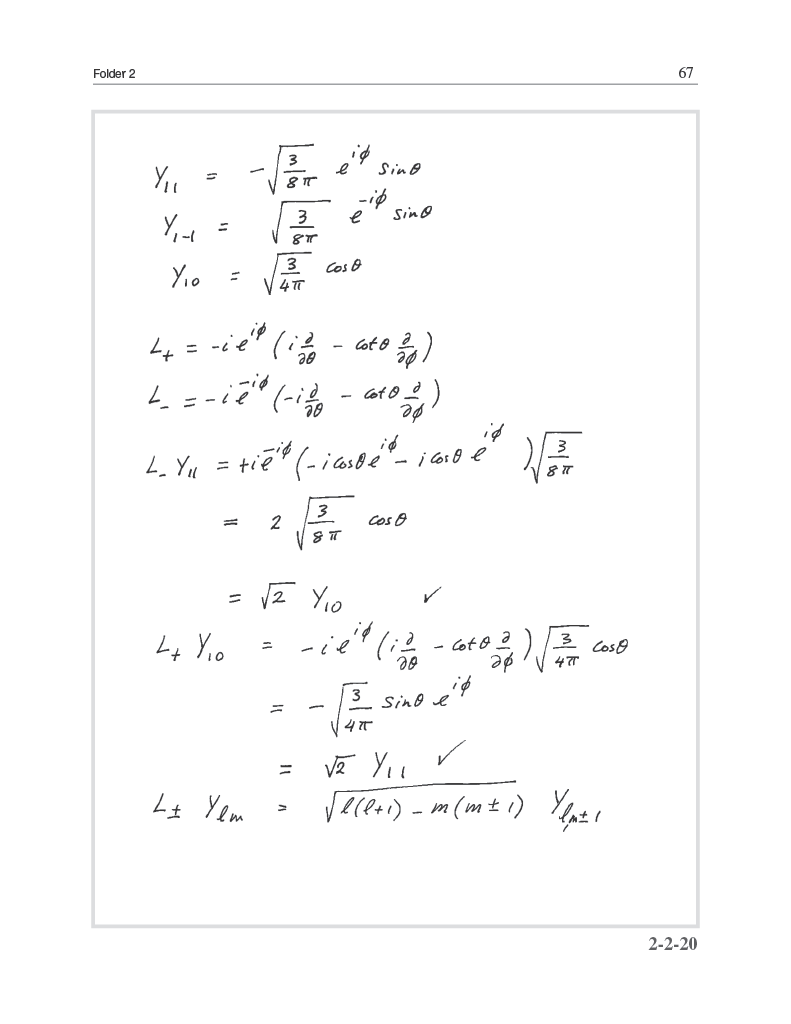 Folder 2 67
Y₁₁ = -√(3/8π) e^{iϕ} sinθ
Y₁₋₁ = √(3/8π) e^{-iϕ} sinθ
Y₁₀ = √(3/4π) cosθ
L₊ = -i e^{iϕ} (i ∂/∂θ - cotθ ∂/∂ϕ)
L₋ = -i e^{-iϕ} (-i ∂/∂θ - cotθ ∂/∂ϕ)
L₋ Y₁₁ = +i e^{-iϕ} (-i cosθ e^{iϕ} - i cosθ e^{iϕ} ) √(3/8π)
= 2 √(3/8π) cosθ
= √2 Y₁₀ ✓
L₊ Y₁₀ = -i e^{iϕ} (i ∂/∂θ - cotθ ∂/∂ϕ) √(3/4π) cosθ
= -√(3/4π) sinθ e^{iϕ}
= √2 Y₁₁ ✓
L± Y_{ℓm} = √(ℓ(ℓ+1) - m(m±1)) Y_{ℓ,m±1}
2-2-20